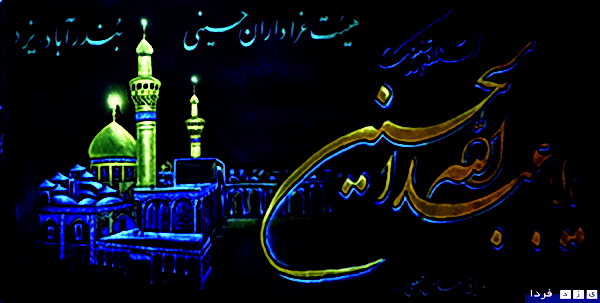 هیئت عزاداران حسینی بُندرآباد یزد
السلام علیک
یا ابا عبدالله الحسین
یزد فردا